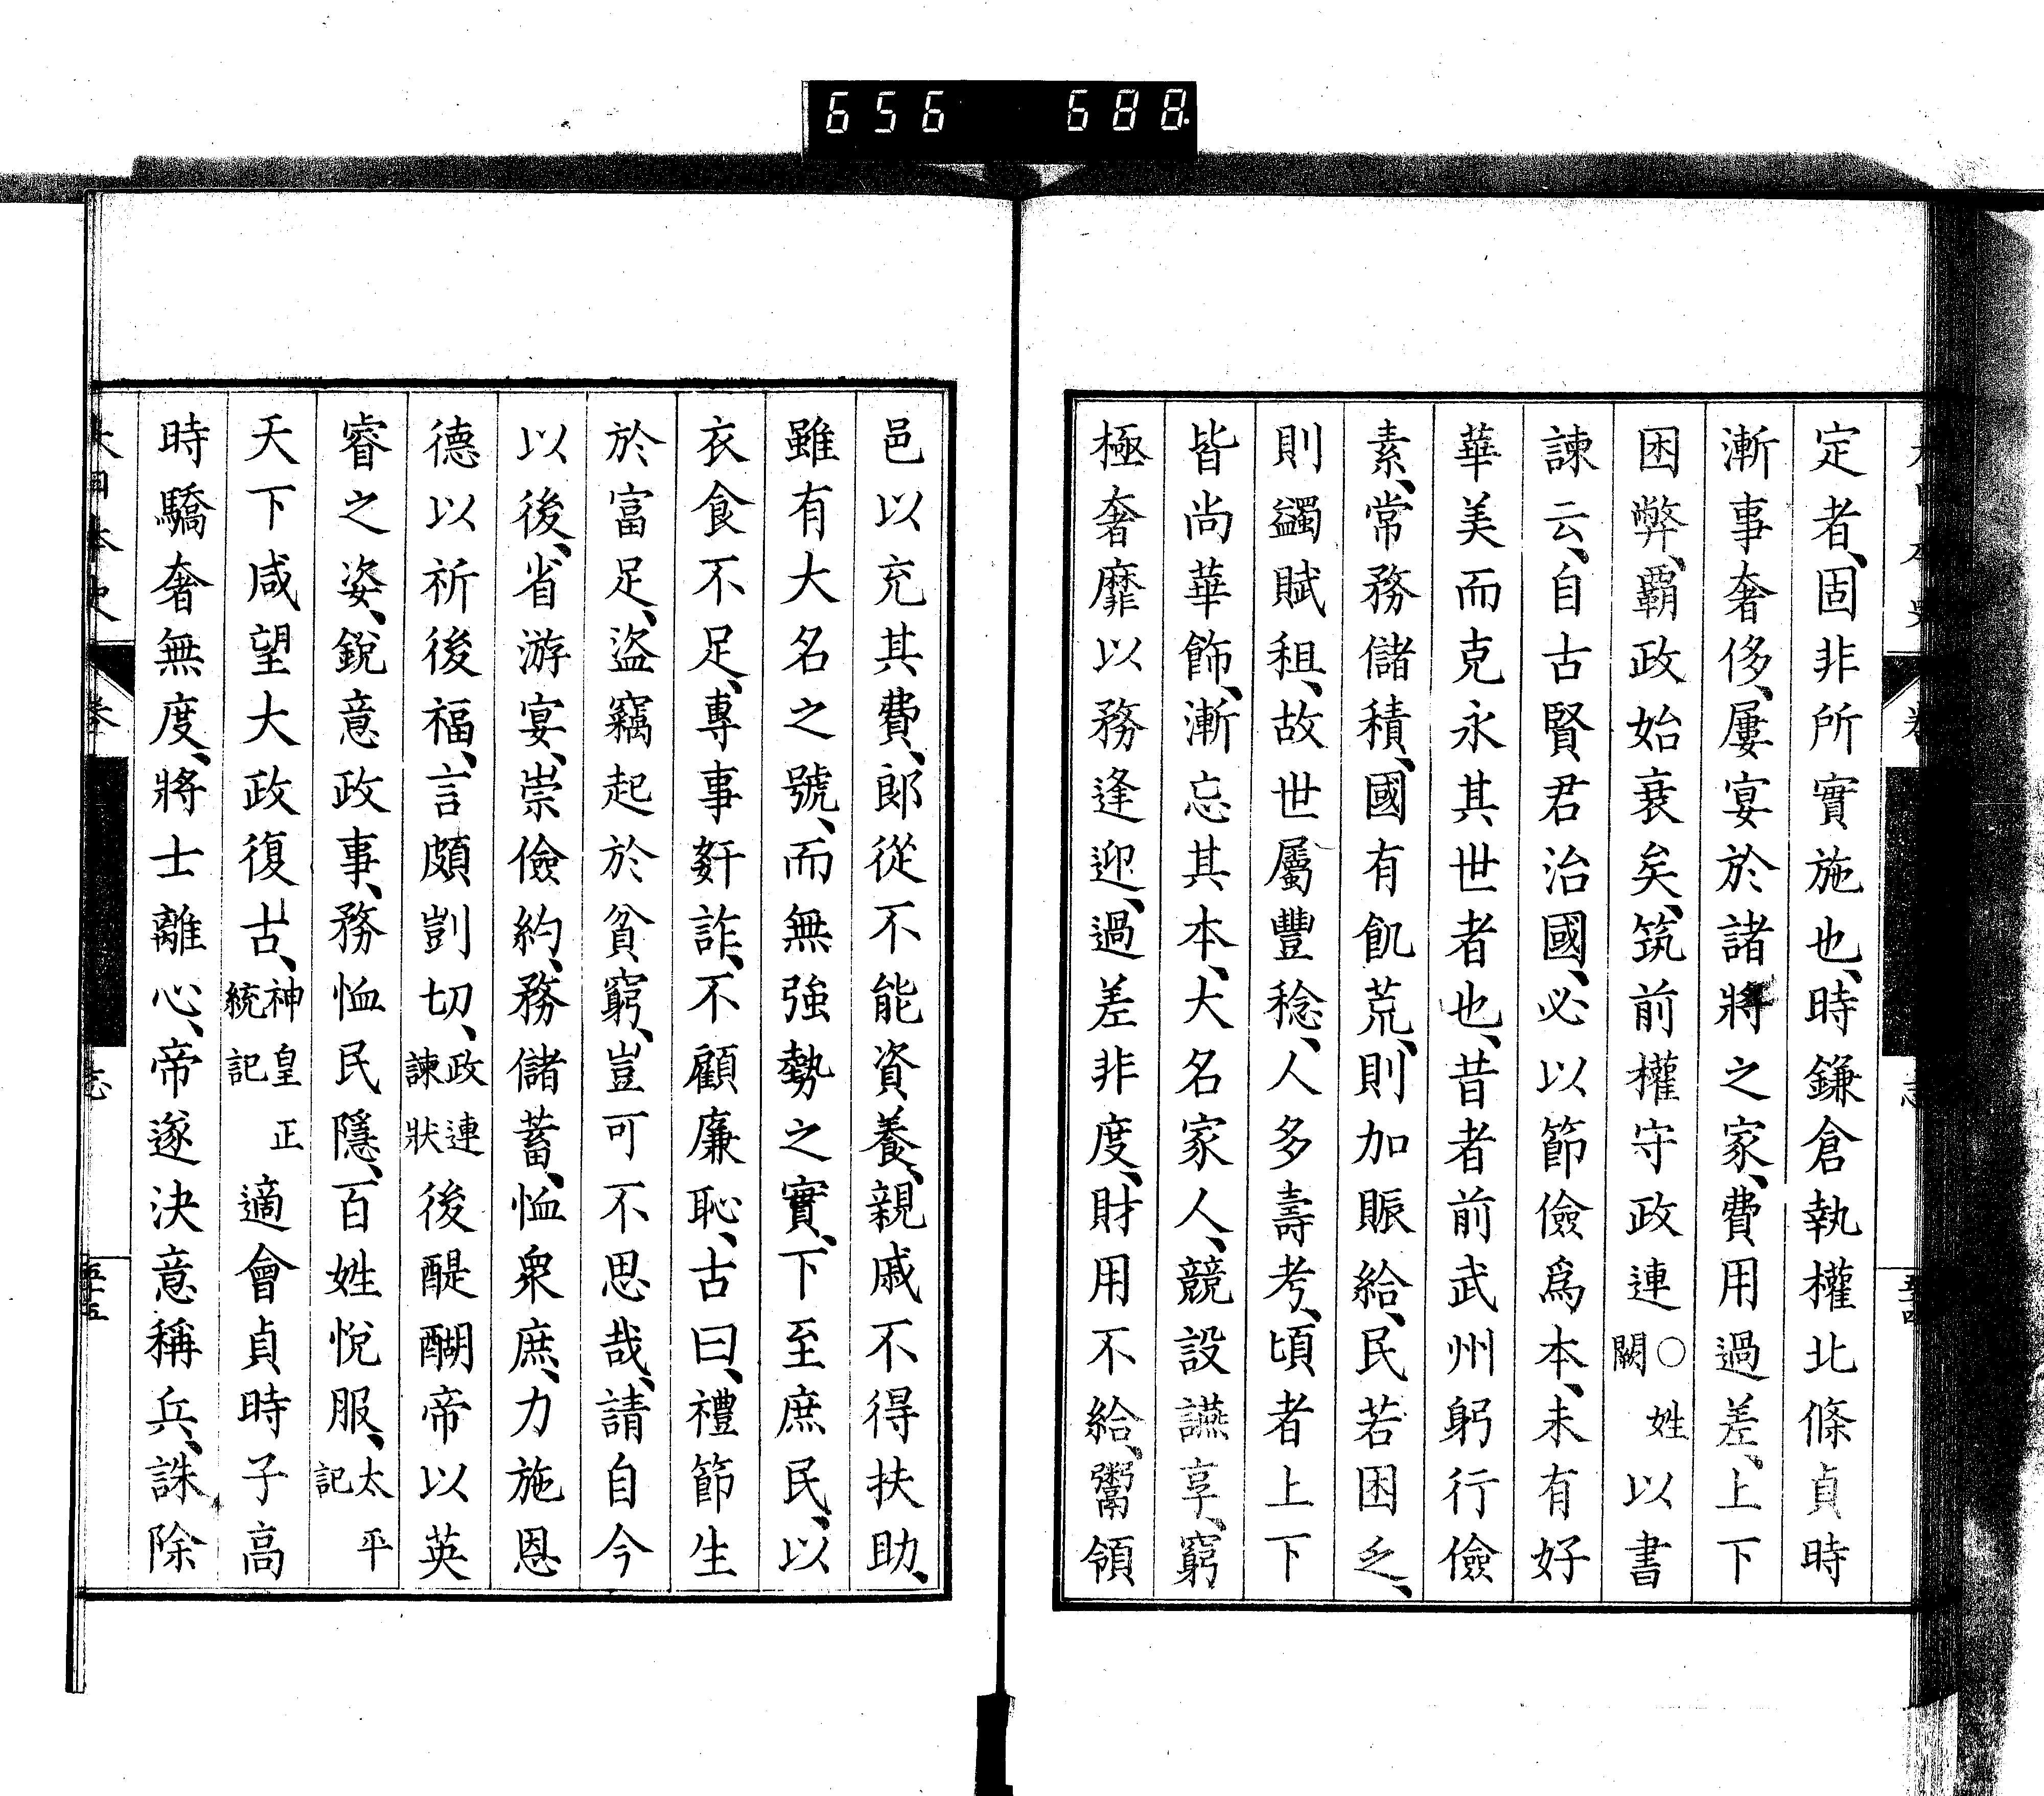 656 688
定者、固非所實施也、時鎌倉執權北條貞時
漸事奢侈、屢宴於諸將之家、費用過差、上下
困弊、覇政始衰矣、筑前權守政連○姓闕以書
諫云、自古賢君治國、必以節儉爲本、未有好
華美而克永其世者也、昔者前武州躬行儉
素、常務儲積、國有飢荒、則加賑給、民若困乏、
則蠲賦租、故世屬豐稔、人多壽考、頃者上下
皆尚華飾、漸忘其本、大名家人、競設讌享、窮
極奢靡以務逢迎、過差非度、財用不給、鬻領
邑以充其費、郎從不能資養、親戚不得扶助、
雖有大名之號、而無強勢之實、下至庶民、以
衣食不足、專事姧詐、不顧廉恥、古曰、禮節生
於富足、盜竊起於貧窮、豈可不思哉、請自今
以後、省游宴、崇儉約、務儲蓄、恤衆庶、力施恩
德以祈後福、言頗剴切、政連諫狀後醍醐帝以英
睿之姿、銳意政事、務恤民隱、百姓悅服、太平記
天下咸望大政復古、神皇正統記適會貞時子高
時驕奢無度、將士離心、帝遂決意稱兵、誅除
大日本史 卷 志 五十五